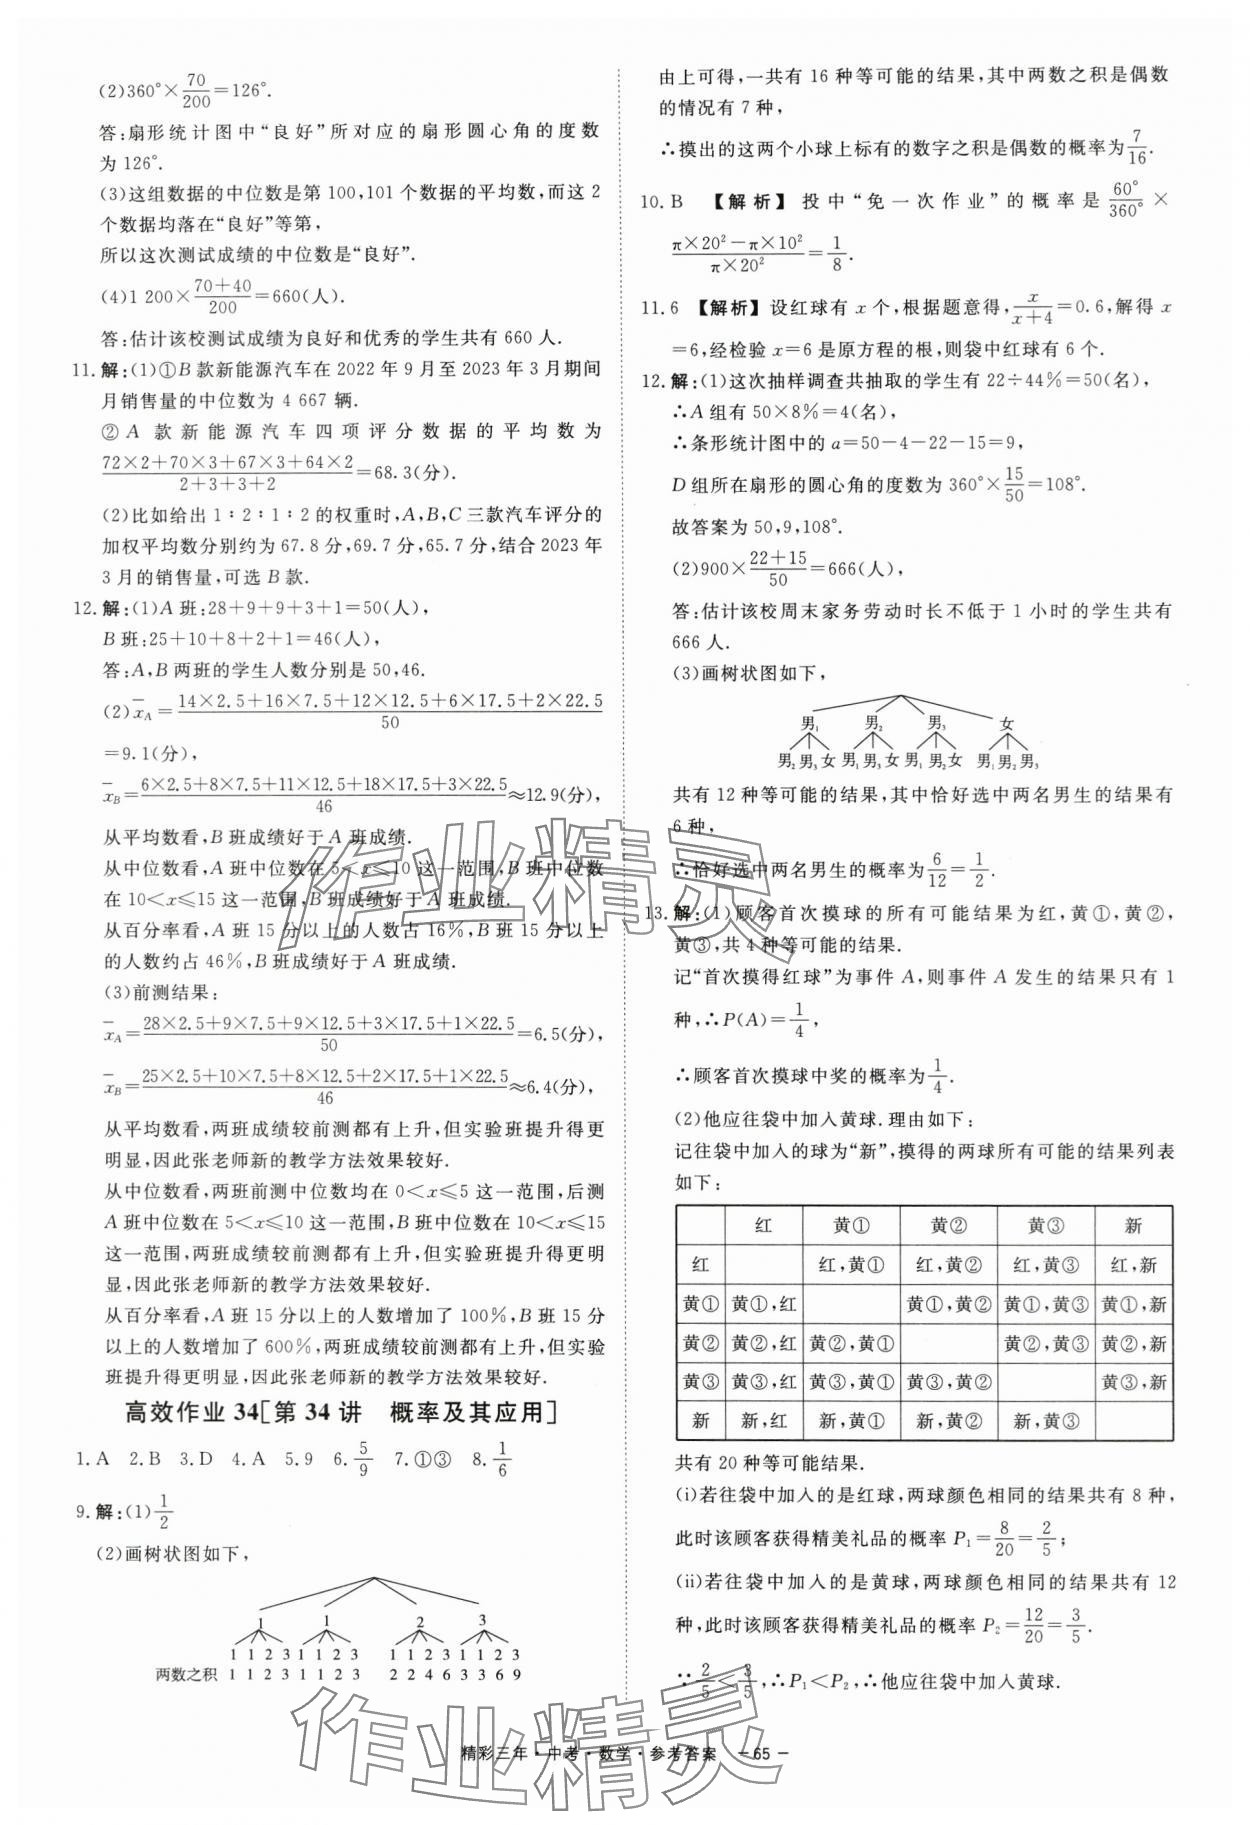 (2)360°×70/200=126°.
答:扇形统计图中“良好”所对应的扇形圆心角的度数
为 126°.
(3)这组数据的中位数是第 100,101 个数据的平均数,而这 2
个数据均落在“良好”等第,
所以这次测试成绩的中位数是“良好”.
(4)1 200×(70+40)/200=660(人).
答:估计该校测试成绩为良好和优秀的学生共有 660 人.
11.解:(1)①B 款新能源汽车在 2022 年 9 月至 2023 年 3 月期间
月销售量的中位数为 4 667 辆.
②A 款新能源汽车四项评分数据的平均数为
(72×2+70×3+67×3+64×2)/(2+3+3+2)=68.3(分).
(2)比如给出 1∶2∶1∶2 的权重时,A,B,C 三款汽车评分的
加权平均数分别约为 67.8 分,69.7 分,65.7 分,结合 2023 年
3 月的销售量,可选 B 款.
12.解:(1)A 班:28+9+9+3+1=50(人),
B 班:25+10+8+2+1=46(人),
答:A,B 两班的学生人数分别是 50,46.
(2)x̄A=(14×2.5+16×7.5+12×12.5+6×17.5+2×22.5)/50
=9.1(分),
x̄B=(6×2.5+8×7.5+11×12.5+18×17.5+3×22.5)/46≈12.9(分),
从平均数看,B 班成绩好于 A 班成绩.
从中位数看,A 班中位数在 5<x≤10 这一范围,B 班中位数
在 10<x≤15 这一范围,B 班成绩好于 A 班成绩.
从百分率看,A 班 15 分以上的人数占 16%,B 班 15 分以上
的人数约占 46%,B 班成绩好于 A 班成绩.
(3)前测结果:
x̄A=(28×2.5+9×7.5+9×12.5+3×17.5+1×22.5)/50=6.5(分),
x̄B=(25×2.5+10×7.5+8×12.5+2×17.5+1×22.5)/46≈6.4(分),
从平均数看,两班成绩较前测都有上升,但实验班提升得更
明显,因此张老师新的教学方法效果较好.
从中位数看,两班前测中位数均在 0<x≤5 这一范围,后测
A 班中位数在 5<x≤10 这一范围,B 班中位数在 10<x≤15
这一范围,两班成绩较前测都有上升,但实验班提升得更明
显,因此张老师新的教学方法效果较好.
从百分率看,A 班 15 分以上的人数增加了 100%,B 班 15 分
以上的人数增加了 600%,两班成绩较前测都有上升,但实验
班提升得更明显,因此张老师新的教学方法效果较好.
高效作业 34[第 34 讲 概率及其应用]
1.A 2.B 3.D 4.A 5.9 6.5/9 7.①③ 8.1/6
9.解:(1)1/2
(2)画树状图如下,
1 1 2 3
1 1 2 3 1 1 2 3 1 1 2 3 1 1 2 3
两数之积 1 1 2 3 1 1 2 3 2 2 4 6 3 3 6 9
由上可得,一共有 16 种等可能的结果,其中两数之积是偶数
的情况有 7 种,
∴摸出的这两个小球上标有的数字之积是偶数的概率为7/16.
10.B 【解析】 投中“免一次作业”的概率是 60°/360° ×
(π×20²−π×10²)/(π×20²)=1/8.
11.6 【解析】 设红球有 x 个,根据题意得,x/(x+4)=0.6,解得 x
=6,经检验 x=6 是原方程的根,则袋中红球有 6 个.
12.解:(1)这次抽样调查共抽取的学生有 22÷44%=50(名),
∴A 组有 50×8%=4(名),
∴条形统计图中的 a=50−4−22−15=9,
D 组所在扇形的圆心角的度数为 360°×15/50=108°.
故答案为 50,9,108°.
(2)900×(22+15)/50=666(人),
答:估计该校周末家务劳动时长不低于 1 小时的学生共有
666 人.
(3)画树状图如下,
男₁ 男₂ 男₃ 女
男₂男₃女 男₁男₃女 男₁男₂女 男₁男₂男₃
共有 12 种等可能的结果,其中恰好选中两名男生的结果有
6 种,
∴恰好选中两名男生的概率为6/12=1/2.
13.解:(1)顾客首次摸球的所有可能结果为红,黄①,黄②,
黄③,共 4 种等可能的结果.
记“首次摸得红球”为事件 A,则事件 A 发生的结果只有 1
种,∴P(A)=1/4,
∴顾客首次摸球中奖的概率为1/4.
(2)他应往袋中加入黄球.理由如下:
记往袋中加入的球为“新”,摸得的两球所有可能的结果列表
如下:
红 黄① 黄② 黄③ 新
红 红,黄① 红,黄② 红,黄③ 红,新
黄① 黄①,红 黄①,黄② 黄①,黄③ 黄①,新
黄② 黄②,红 黄②,黄① 黄②,黄③ 黄②,新
黄③ 黄③,红 黄③,黄① 黄③,黄② 黄③,新
新 新,红 新,黄① 新,黄② 新,黄③
共有 20 种等可能结果.
(i)若往袋中加入的是红球,两球颜色相同的结果共有 8 种,
此时该顾客获得精美礼品的概率 P₁=8/20=2/5;
(ii)若往袋中加入的是黄球,两球颜色相同的结果共有 12
种,此时该顾客获得精美礼品的概率 P₂=12/20=3/5.
∵2/5<3/5,∴P₁<P₂,∴他应往袋中加入黄球.
作业精灵
作业精灵
精彩三年·中考·数学·参考答案 －65－